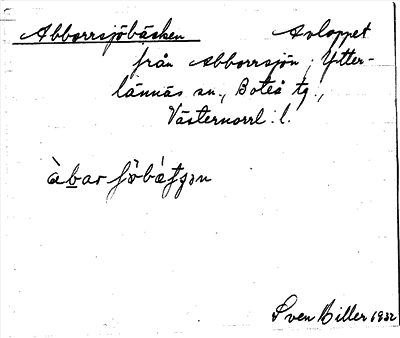 Abborrsjöbäcken Avloppet
från Abborrsjön, Ytter-
lännäs sn., Boteå tg.,
Västernorrl. l.
àbar ʃö̀bɛ́tʃən
Sven Hiller 1932